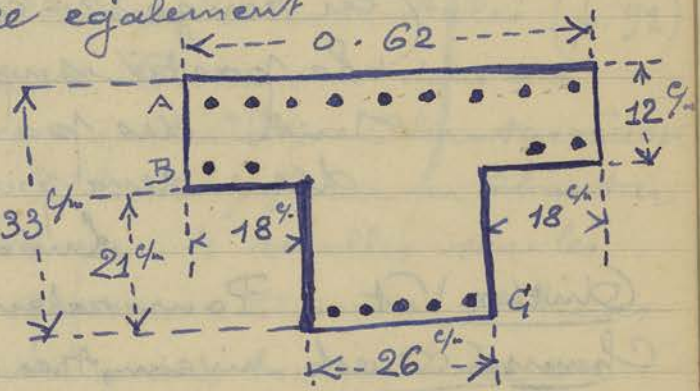 e également
0.62
A
12 c/m
B
33 c/m
18 c/.
18 c/m
21 c/m
G
26 c/m